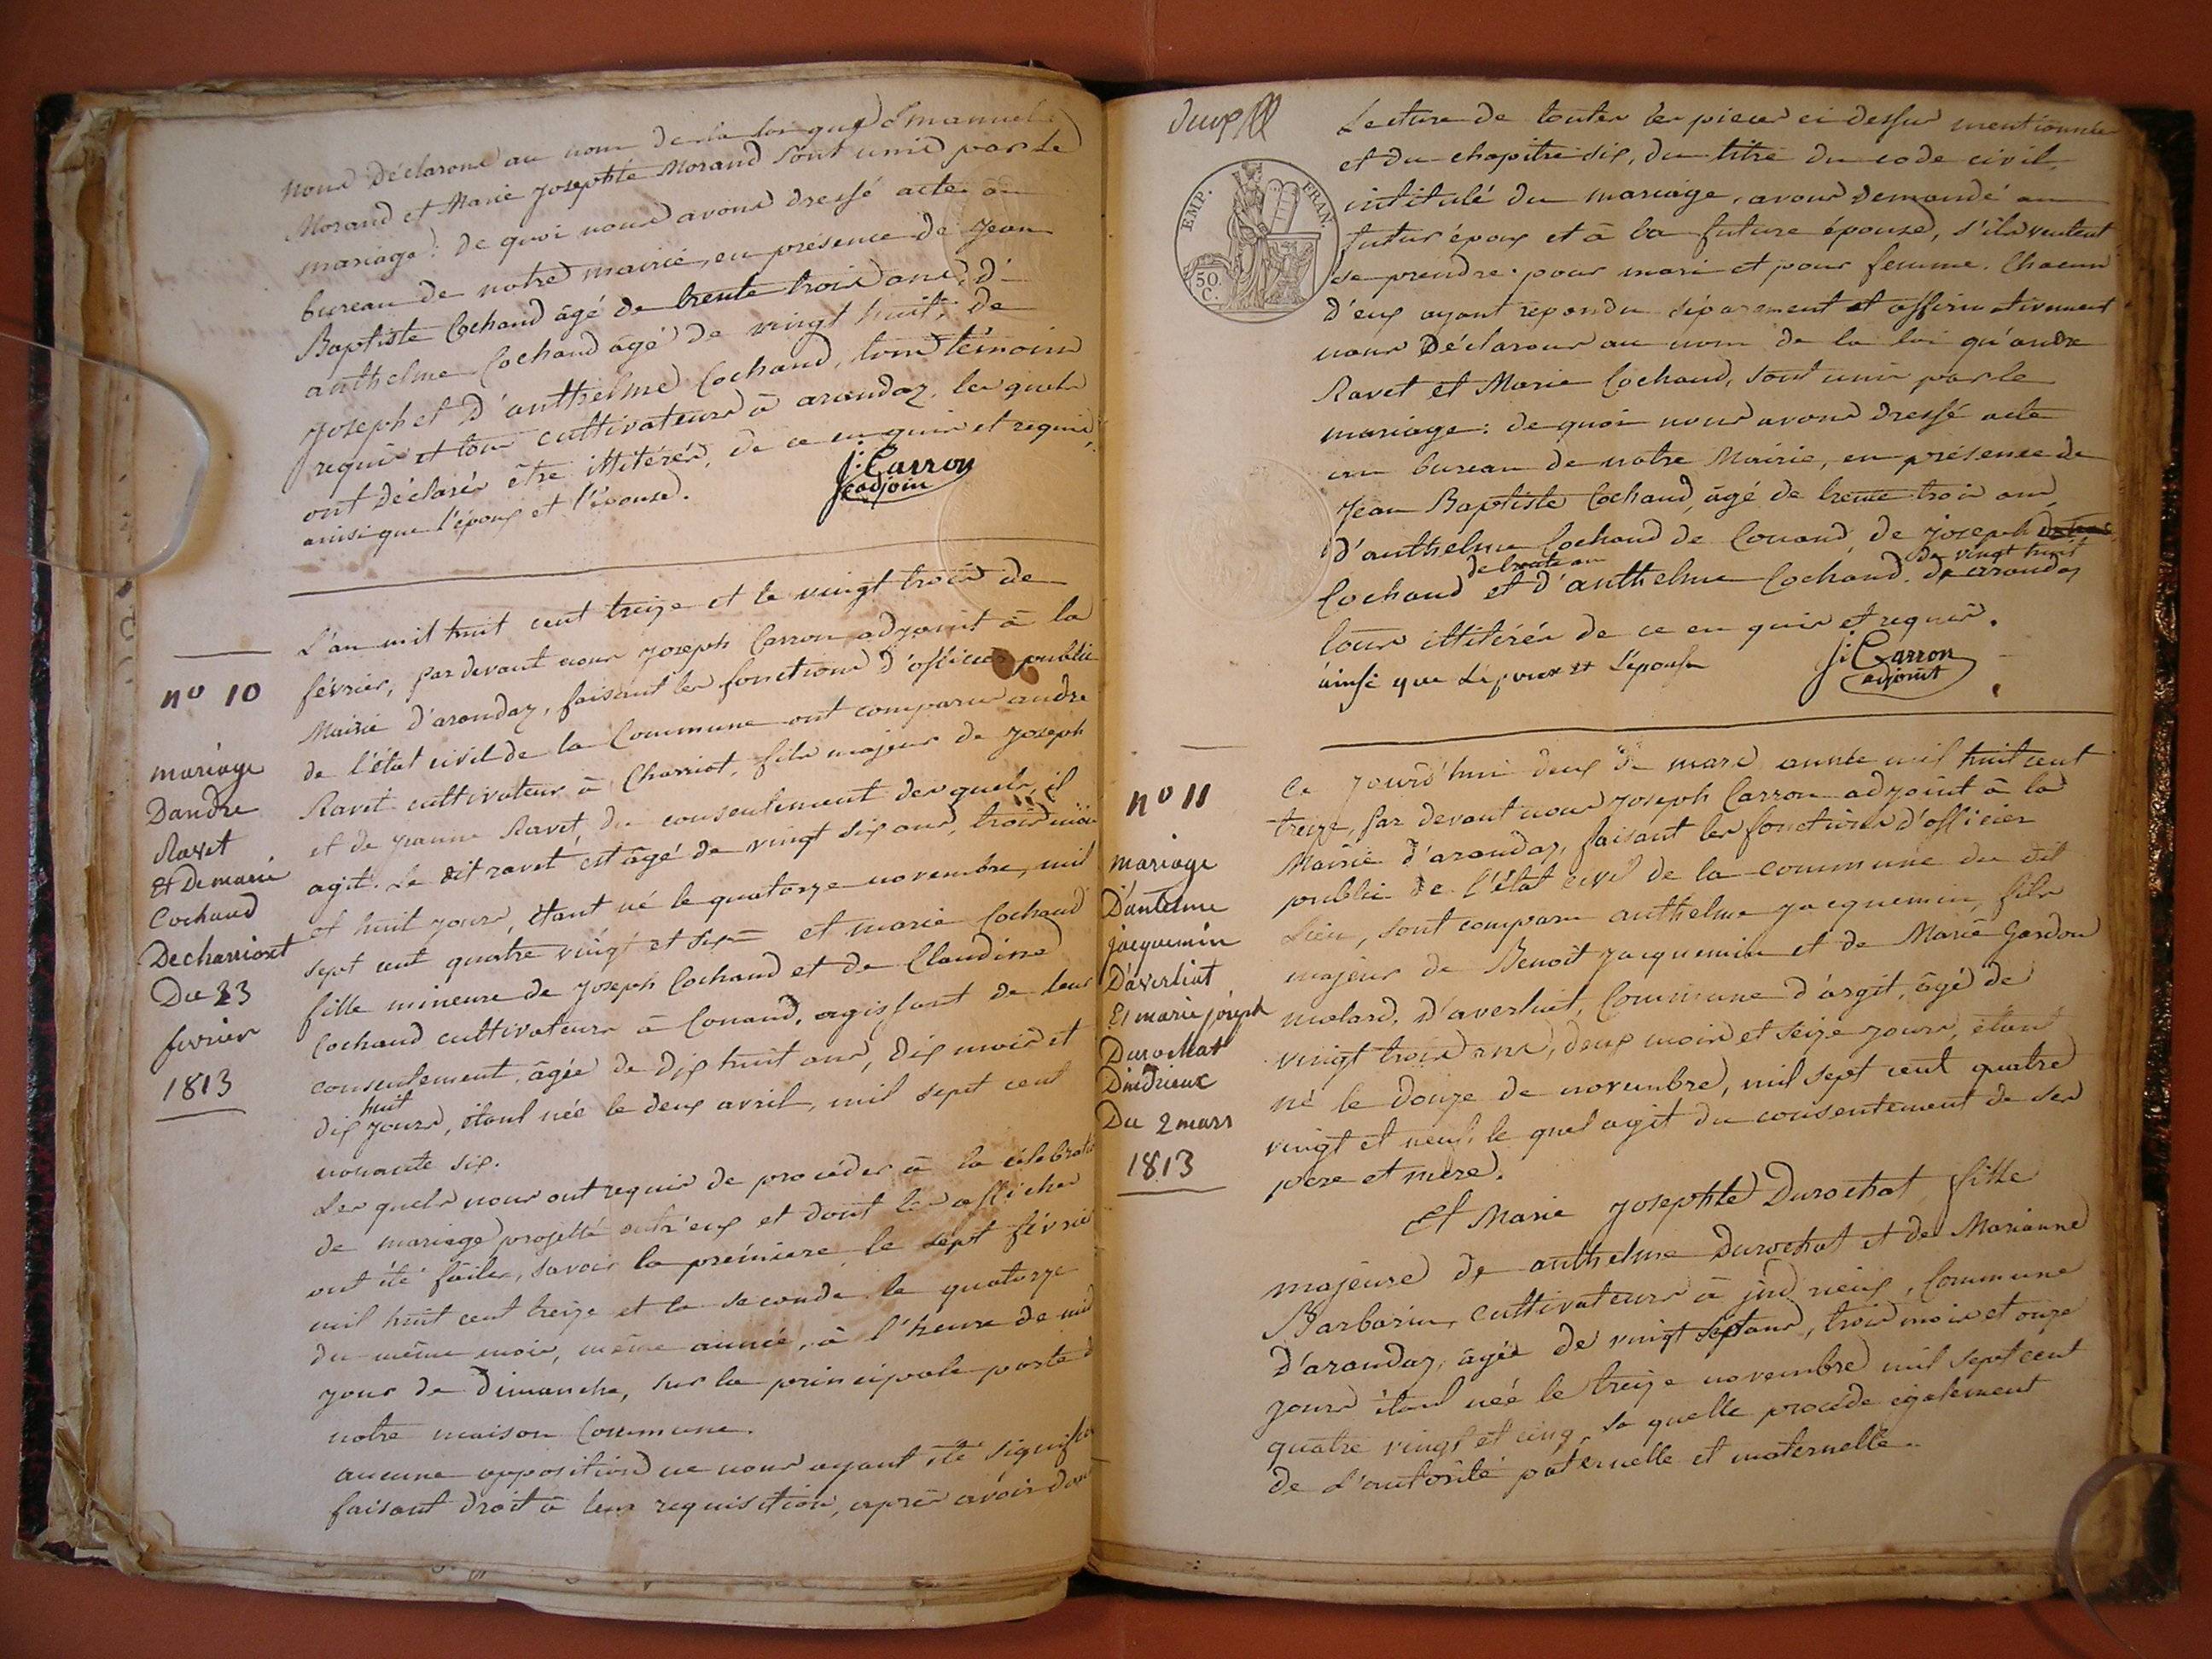 nous Déclarons au nom de la loi que Emanuel
Morand et Marie Josephte Morand sont unis par le
mariage: de quoi nous avons dressé acte au
bureau de notre mairie, en présence de Jean
Baptiste Cochand âgé de trente trois ans, d'
anthelme Cochand âgé de vingt huit, de
Joseph et D'anthelme Cochand, tous témoins
requis et tous cultivateurs à arandaz, les quels
ont déclarés être illitérés, de ce enquis et requis,
ainsi que l'époux et l'épouse.
J: Carron
adjoin
nº 10
mariage
Dandre
Ravet
Et De marie
Cochand
De charriost
Du 23
fevrier
1813
L'an mil huit cent treize et le vingt trois de
février, par devant nous Joseph Carron adjoint à la
Mairie d'arandaz, faisant les fonctions d'officier public
de l'état civil de la Commune ont comparu andre
Ravet cultivateur à Charriot, fils majeur de Joseph
et de Jeanne Ravet, du consentement des quels, il
agit. Le dit ravet est âgé de vingt six ans, trois mois
et huit jours, étant né le quatorze novembre, mil
sept cent quatre vingt et six = et marie Cochand
fille mineure de Joseph Cochand et de Claudine
Cochand cultivateurs à Conand, agissant de leur
consentement, âgée de dix huit ans, dix mois et
huit
dix jours, étant née le deux avril, mil sept cent
nonante six.
Les quels nous ont requis de procéder à la célébrati
de mariage projetté entr'eux et dont les affiches
ont été faites, savoir la premiere le sept févrie
mil huit cent treize et la seconde le quatorze
du même mois, même année, à l'heure de mid
jour de Dimanche, sur la principale porte d
notre maison Commune.
aucune opposition ne nous ayant été signifié
faisant droit à leur requisition, après avoir don
deux
TEMP. FRAN.
50
C.
Lecture de toutes les pieces ci dessus mentionnées
et du chapitre six, du titre du code civil
intitulé du mariage, avons demandé au
futur époux et à la future épouse, s'ils veulent
se prendre pour mari et pour femme. Chacun
d'eux ayant repondu séparement et affirmativement
nous Déclarons au nom de la loi qu'andre
Ravet et Marie Cochand, sont unis par le
mariage: de quoi nous avons dressé acte
au bureau de notre Mairie, en présence de
Jean Baptiste Cochand, âgé de trente trois ans
d'anthelme Cochand de Conand, de Joseph
de trente ans de vingt huit
Cochand et d'anthelme Cochand de arandaz
tous illitérés de ce enquis et requis.
ainsi que L'epoux et L'épouse
J: Carron
adjoint
nº 11
mariage
D'antelme
jacquemin
D'averliat
Et marie joseph
Durochat
Dindrieux
Du 2 mars
1813
Ce Jourd'hui deux de mars année mil huit cent
treize, par devant nous Joseph Carron adjoint à la
Mairie d'arandaz, faisant les fonctions d'officier
public de l'état civil de la commune du dit
Lieu, sont comparu anthelme Jacquemin, fils
majeur de Benoît Jacquemin et de Marie Gardon
molard, D'averliat, Commune d'argit, âgé de
vingt trois ans, deux mois et seize jours, étant
né le douze de novembre, mil sept cent quatre
vingt et neuf, le quel agit du consentement de ses
pere et mere.
Et Marie Josephte Durochat fille
majeure de anthelme Durochat et de Marianne
Barbarin, cultivateurs à indrieux, Commune
D'arandaz, âgée de vingt sept ans, trois mois et onze
jours étant née le treize novembre mil sept cent
quatre vingt et cinq, la quelle procéde également
de L'autorité paternelle et maternelle.